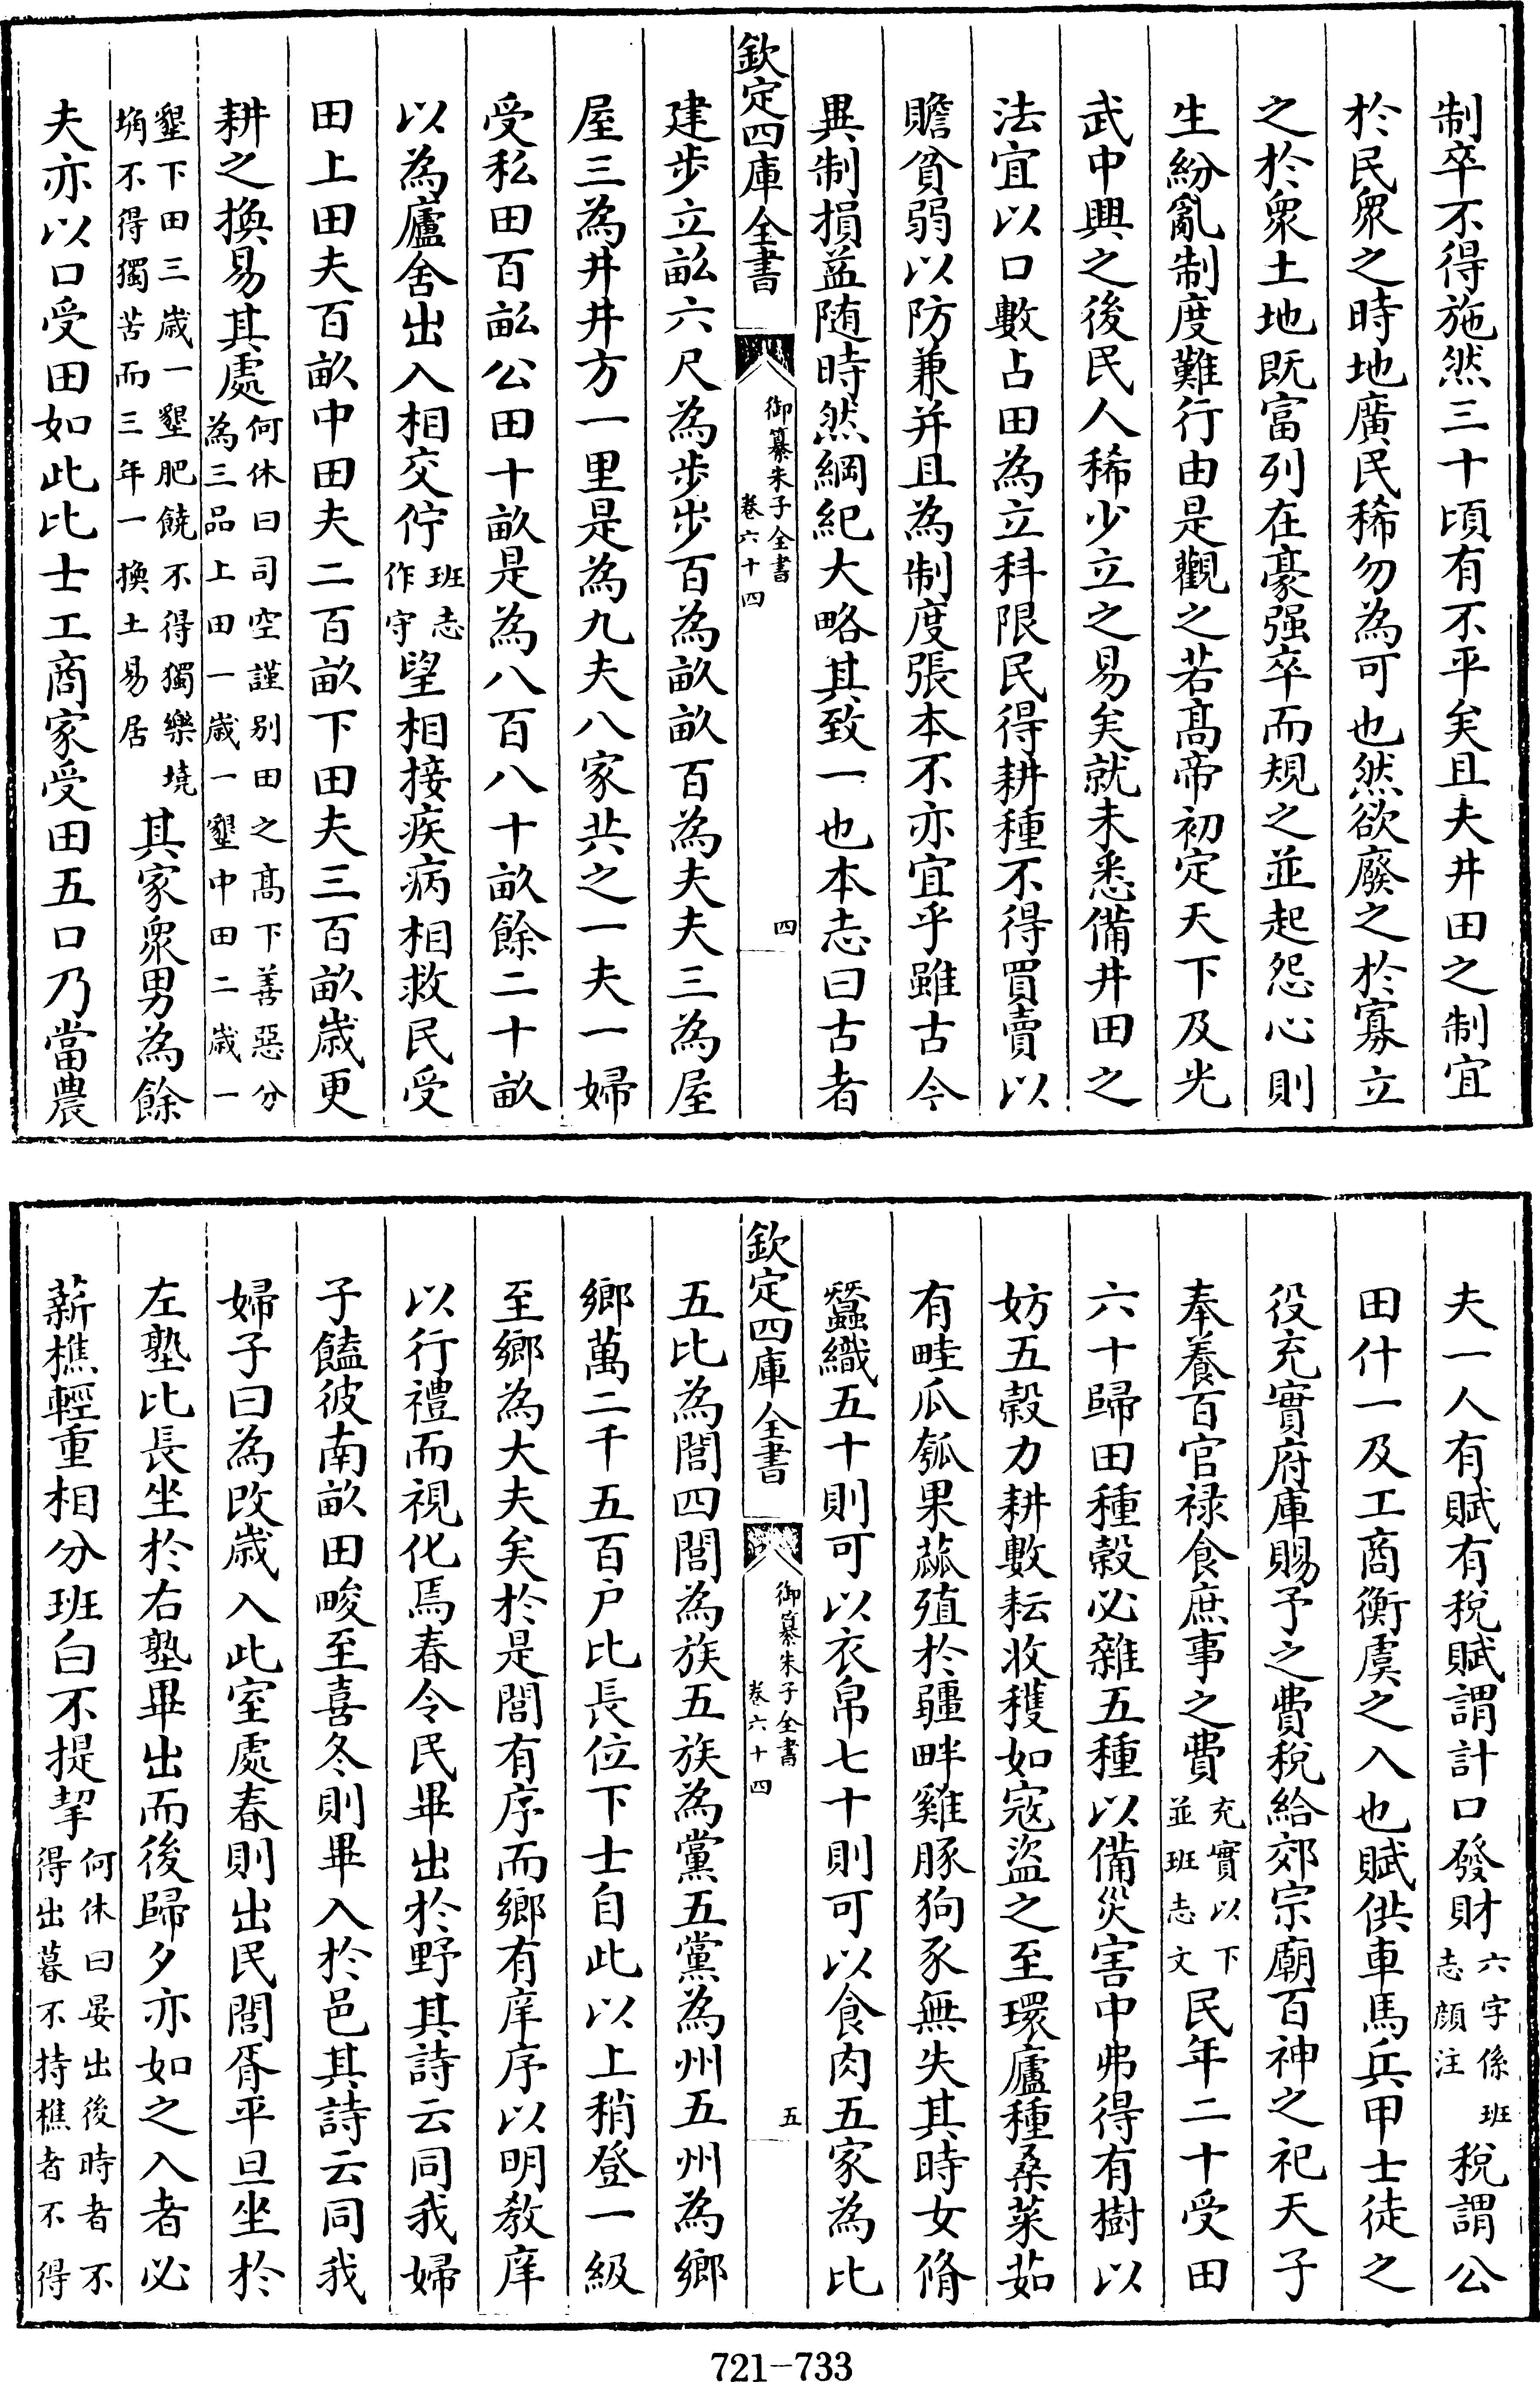 制卒不得施然三十頃有不平矣且夫井田之制宜
於民衆之時地廣民稀勿為可也然欲廢之於寡立
之於衆土地既富列在豪强卒而規之並起怨心則
生紛亂制度難行由是觀之若髙帝初定天下及光
武中興之後民人稀少立之易矣就未悉備井田之
法宜以口數占田為立科限民得耕種不得買賣以
贍貧弱以防兼并且為制度張本不亦宜乎雖古今
異制損益随時然綱紀大略其致一也本志曰古者
欽定四庫全書
御纂朱子全書
卷六十四
四
建步立畝六尺為步步百為畝畝百為夫夫三為屋
屋三為井井方一里是為九夫八家共之一夫一婦
受私田百畝公田十畝是為八百八十畝餘二十畝
以為廬舍出入相交佇班志作守望相接疾病相救民受
田上田夫百畝中田夫二百畝下田夫三百畝歲更
耕之換易其處何休曰司空謹别田之髙下善惡分為三品上田一歲一墾中田二歲一
墾下田三歲一墾肥饒不得獨樂墝埆不得獨苦而三年一換土易居其家衆男為餘
夫亦以口受田如此比士工商家受田五口乃當農
夫一人有賦有稅賦謂計口發財六字係班志顔注稅謂公
田什一及工商衡虞之入也賦供車馬兵甲士徒之
役充實府庫賜予之費稅給郊宗廟百神之祀天子
奉養百官禄食庶事之費充實以下並班志文民年二十受田
六十歸田種穀必雜五種以備災害中弗得有樹以
妨五穀力耕數耘收穫如寇盜之至環廬種桑菜茹
有畦瓜瓠果蓏殖於疆畔雞豚狗豕無失其時女脩
蠶織五十則可以衣帛七十則可以食肉五家為比
欽定四庫全書
御纂朱子全書
卷六十四
五
五比為閭四閭為族五族為黨五黨為州五州為鄉
鄉萬二千五百户比長位下士自此以上稍登一級
至鄉為大夫矣於是閭有序而鄉有庠序以明教庠
以行禮而視化焉春令民畢出於野其詩云同我婦
子饁彼南畝田畯至喜冬則畢入於邑其詩云同我
婦子曰為改歲入此室處春則出民閭胥平旦坐於
左塾比長坐於右塾畢出而後歸夕亦如之入者必
薪樵輕重相分班白不提挈何休曰晏出後時者不得出暮不持樵者不得
721-733